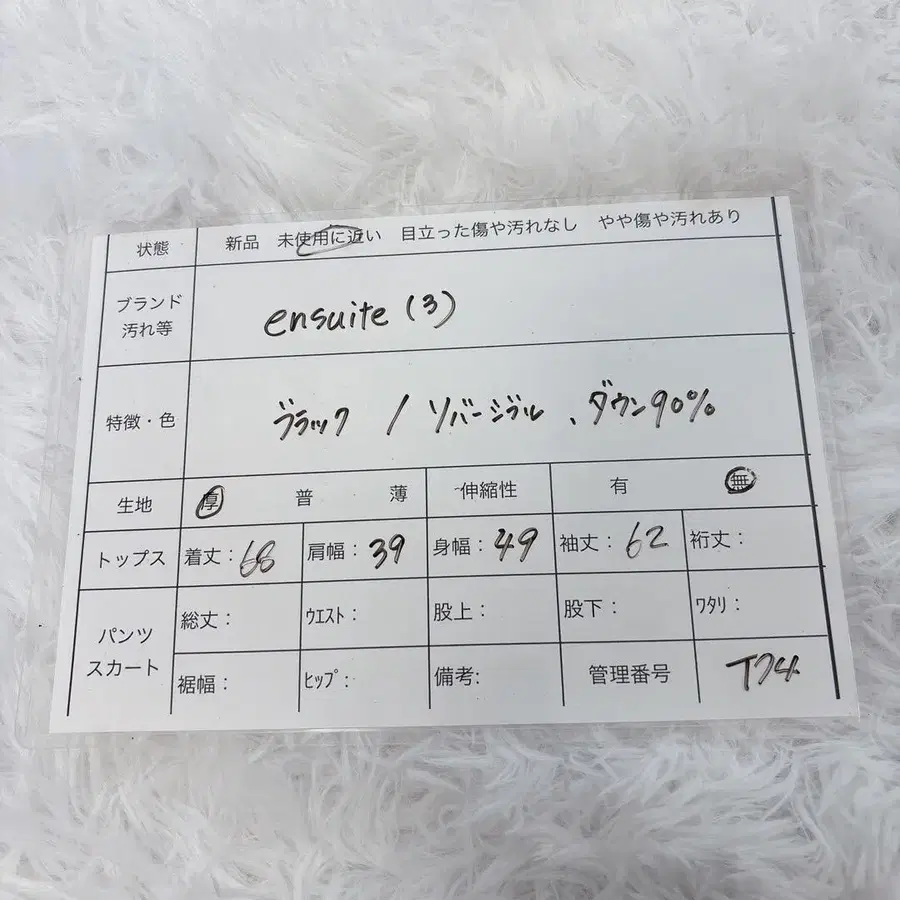 状態 新品 未使用に近い 目立った傷や汚れなし やや傷や汚れあり
ブランド
汚れ等
ensuite (3)
特徴・色 ブラック / リバーシブル、ダウン90%
生地 厚 普 薄 伸縮性 有 無
トップス 着丈：68 肩幅：39 身幅：49 袖丈：62 裄丈：
パンツ
スカート
総丈： ｳｴｽﾄ： 股上： 股下： ﾜﾀﾘ：
裾幅： ﾋｯﾌﾟ： 備考: 管理番号 T74